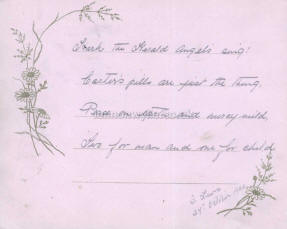 Hark the Herald Angels sing!
Carter's pills are just the thing.
Peace on earth and mercy mild,
Two for man and one for child